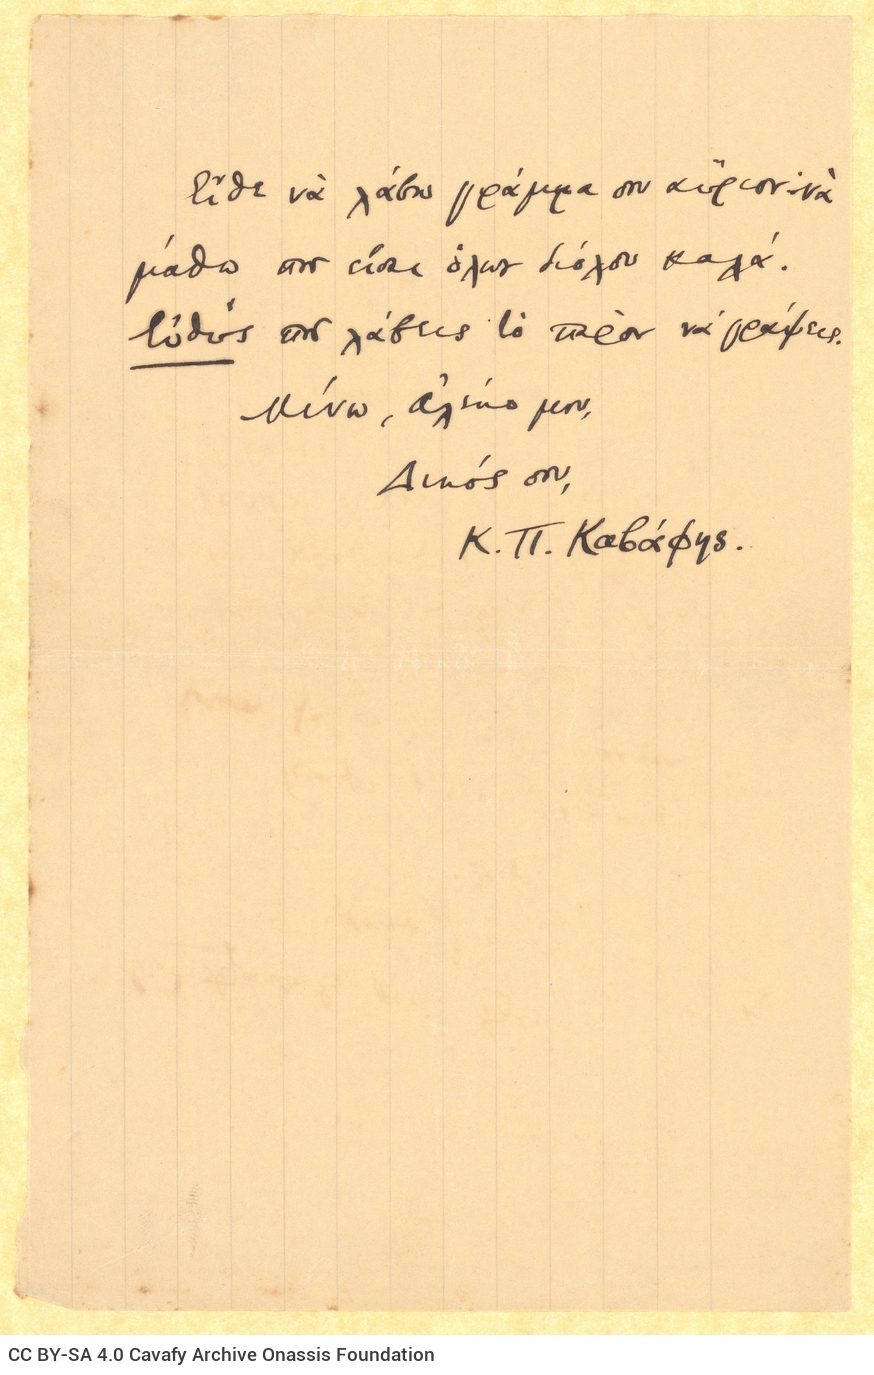 Εἴθε νὰ λάβω γράμμα σου αὔριον· νὰ
μάθω που εἶσαι ὅλως διόλου καλά.
Εὐθὺς που λάβεις τὸ παρὸν νὰ γράψεις.
Μένω, Ἀλέκο μου,
Δικός σου,
Κ. Π. Καβάφης.
CC BY-SA 4.0 Cavafy Archive Onassis Foundation